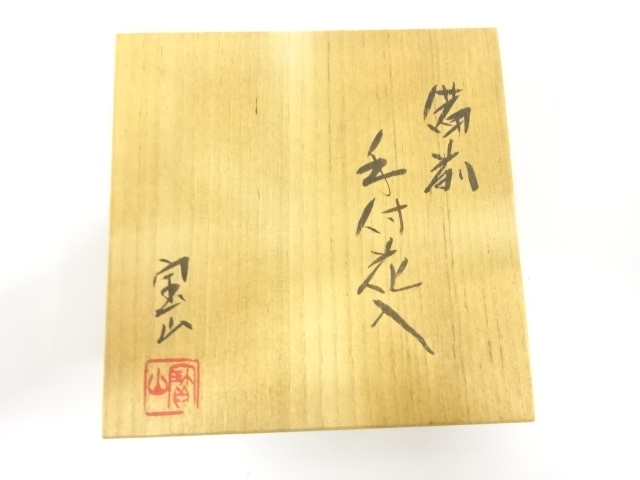 備前
手付花入
宝山
寶山